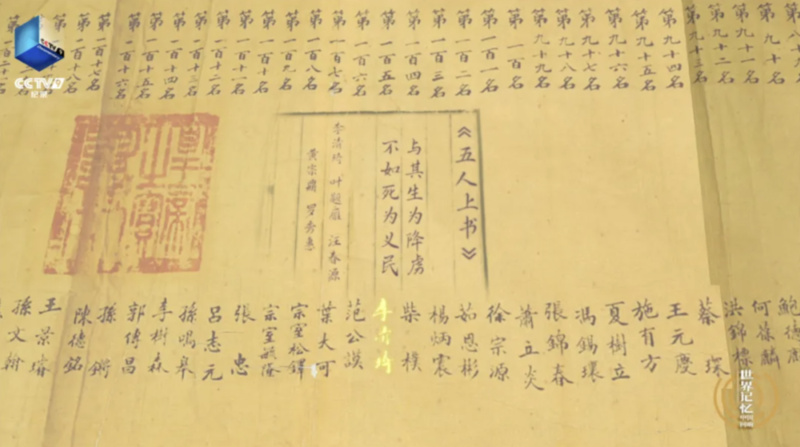 CCTV9
纪录
第九十名
第九十一名
第九十二名
第九十三名
第九十四名
第九十五名
第九十六名
第九十七名
第九十八名
第九十九名
第一百名
第一百一名
第一百二名
第一百三名
第一百四名
第一百五名
第一百六名
第一百七名
第一百八名
第一百九名
第一百十名
第一百十一名
第一百十二名
第一百十三名
第一百十四名
第一百十五名
第一百十六名
第一百十七名
《五人上书》
与其生为降虏
不如死为义民
李清琦 叶题雁 汪春源
黄宗鼎 罗秀惠
何葆麟
洪錦標
蔡琛
王元慶
施有方
夏樹立
馮錫環
張錦春
蕭立炎
徐宗源
茹恩彬
楊炳震
柴樸
李清琦
范公謨
葉大可
宗室松鐸
宗室毓隆
張忠
呂志元
孫鳴皋
李樹森
郭傳昌
孫鏘
陳德銘
王景睿
孫文翰
世界记忆
中国传稿